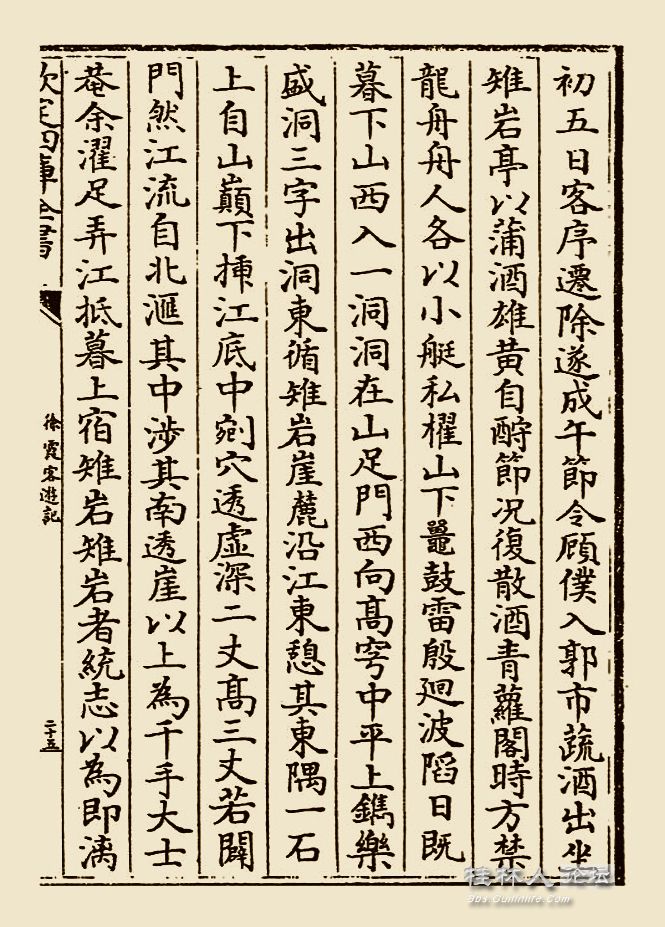 初五日客序遷除遂成午節令顧僕入郭市蔬酒出坐
雉岩亭以蒲酒雄黄自酹節况復散酒青蘿閣時方禁
龍舟舟人各以小艇私櫂山下鼉鼓雷殷廻波蹈日既
暮下山西入一洞洞在山足門西向髙穹中平上鐫樂
盛洞三字出洞東循雉岩崖麓沿江東憩其東隅一石
上自山巔下揷江底中剜穴透虚深二丈髙三丈若闢
門然江流自北滙其中涉其南透崖以上為千手大士
菴余濯足弄江抵暮上宿雉岩雉岩者統志以為即漓
欽定四庫全書
徐霞客遊記
二十五
桂林人论坛
Bbs.Guilinlife.Com